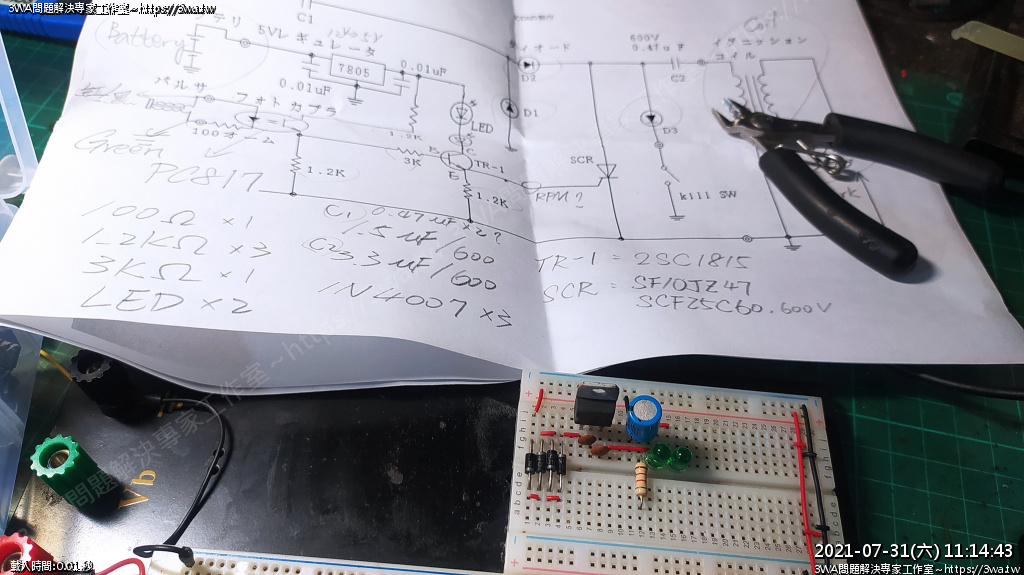 3WA問題解決專家工作室~https://3wa.tw
C1
バッテリ
Battery
5Vレギュレータ
12V→5V
7805
0.01uF
0.01uF
パルサ
フォトカプラ
100オーム
Green
PC817
1.2K
LED
3K
B
C
E
TR-1
1.2K
RPM?
SCR
ダイオード
D2
D1
600V
0.47uF
C2
D3
kill SW
イグニッション
コイル
Coil
100Ω ×1
1.2KΩ ×3
3KΩ ×1
LED ×2
C1 0.47uF ×2?
1.5uF/600
C2 3.3uF/600
1N4007 ×3
TR-1 = 2SC1815
SCR = SF10JZ47
SCF25C60.600V
Vb
2021-07-31(六) 11:14:43
3WA問題解決專家工作室~https://3wa.tw